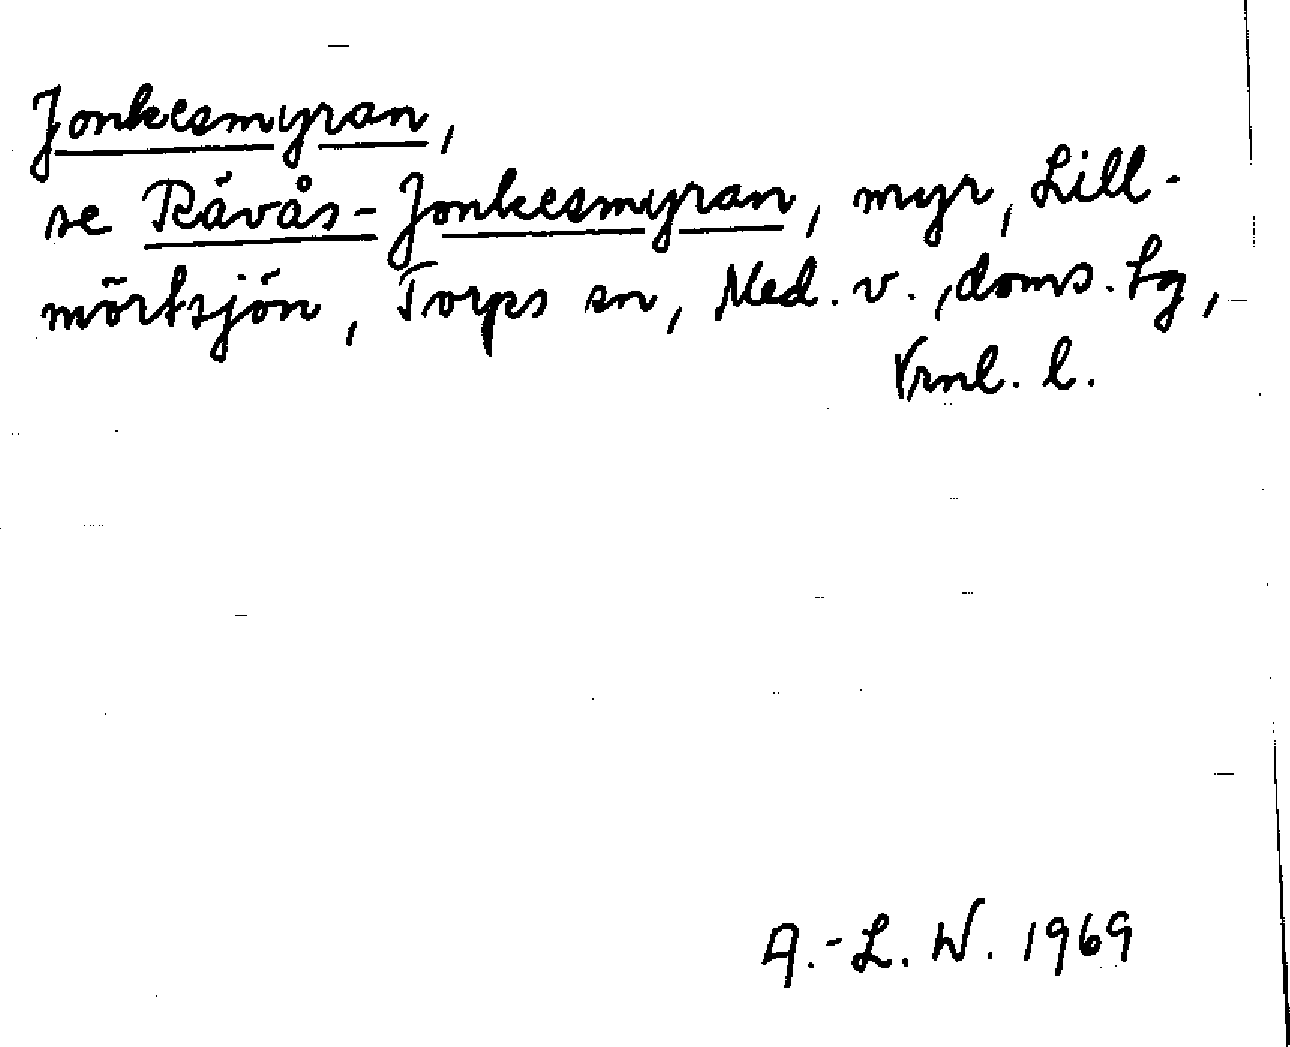 Jonkesmyran,
se Rävås-Jonkesmyran, myr, Lill-
mörtsjön, Torps sn, Med. v., doms. tg,
Vrnl. l.
A.-L. W. 1969